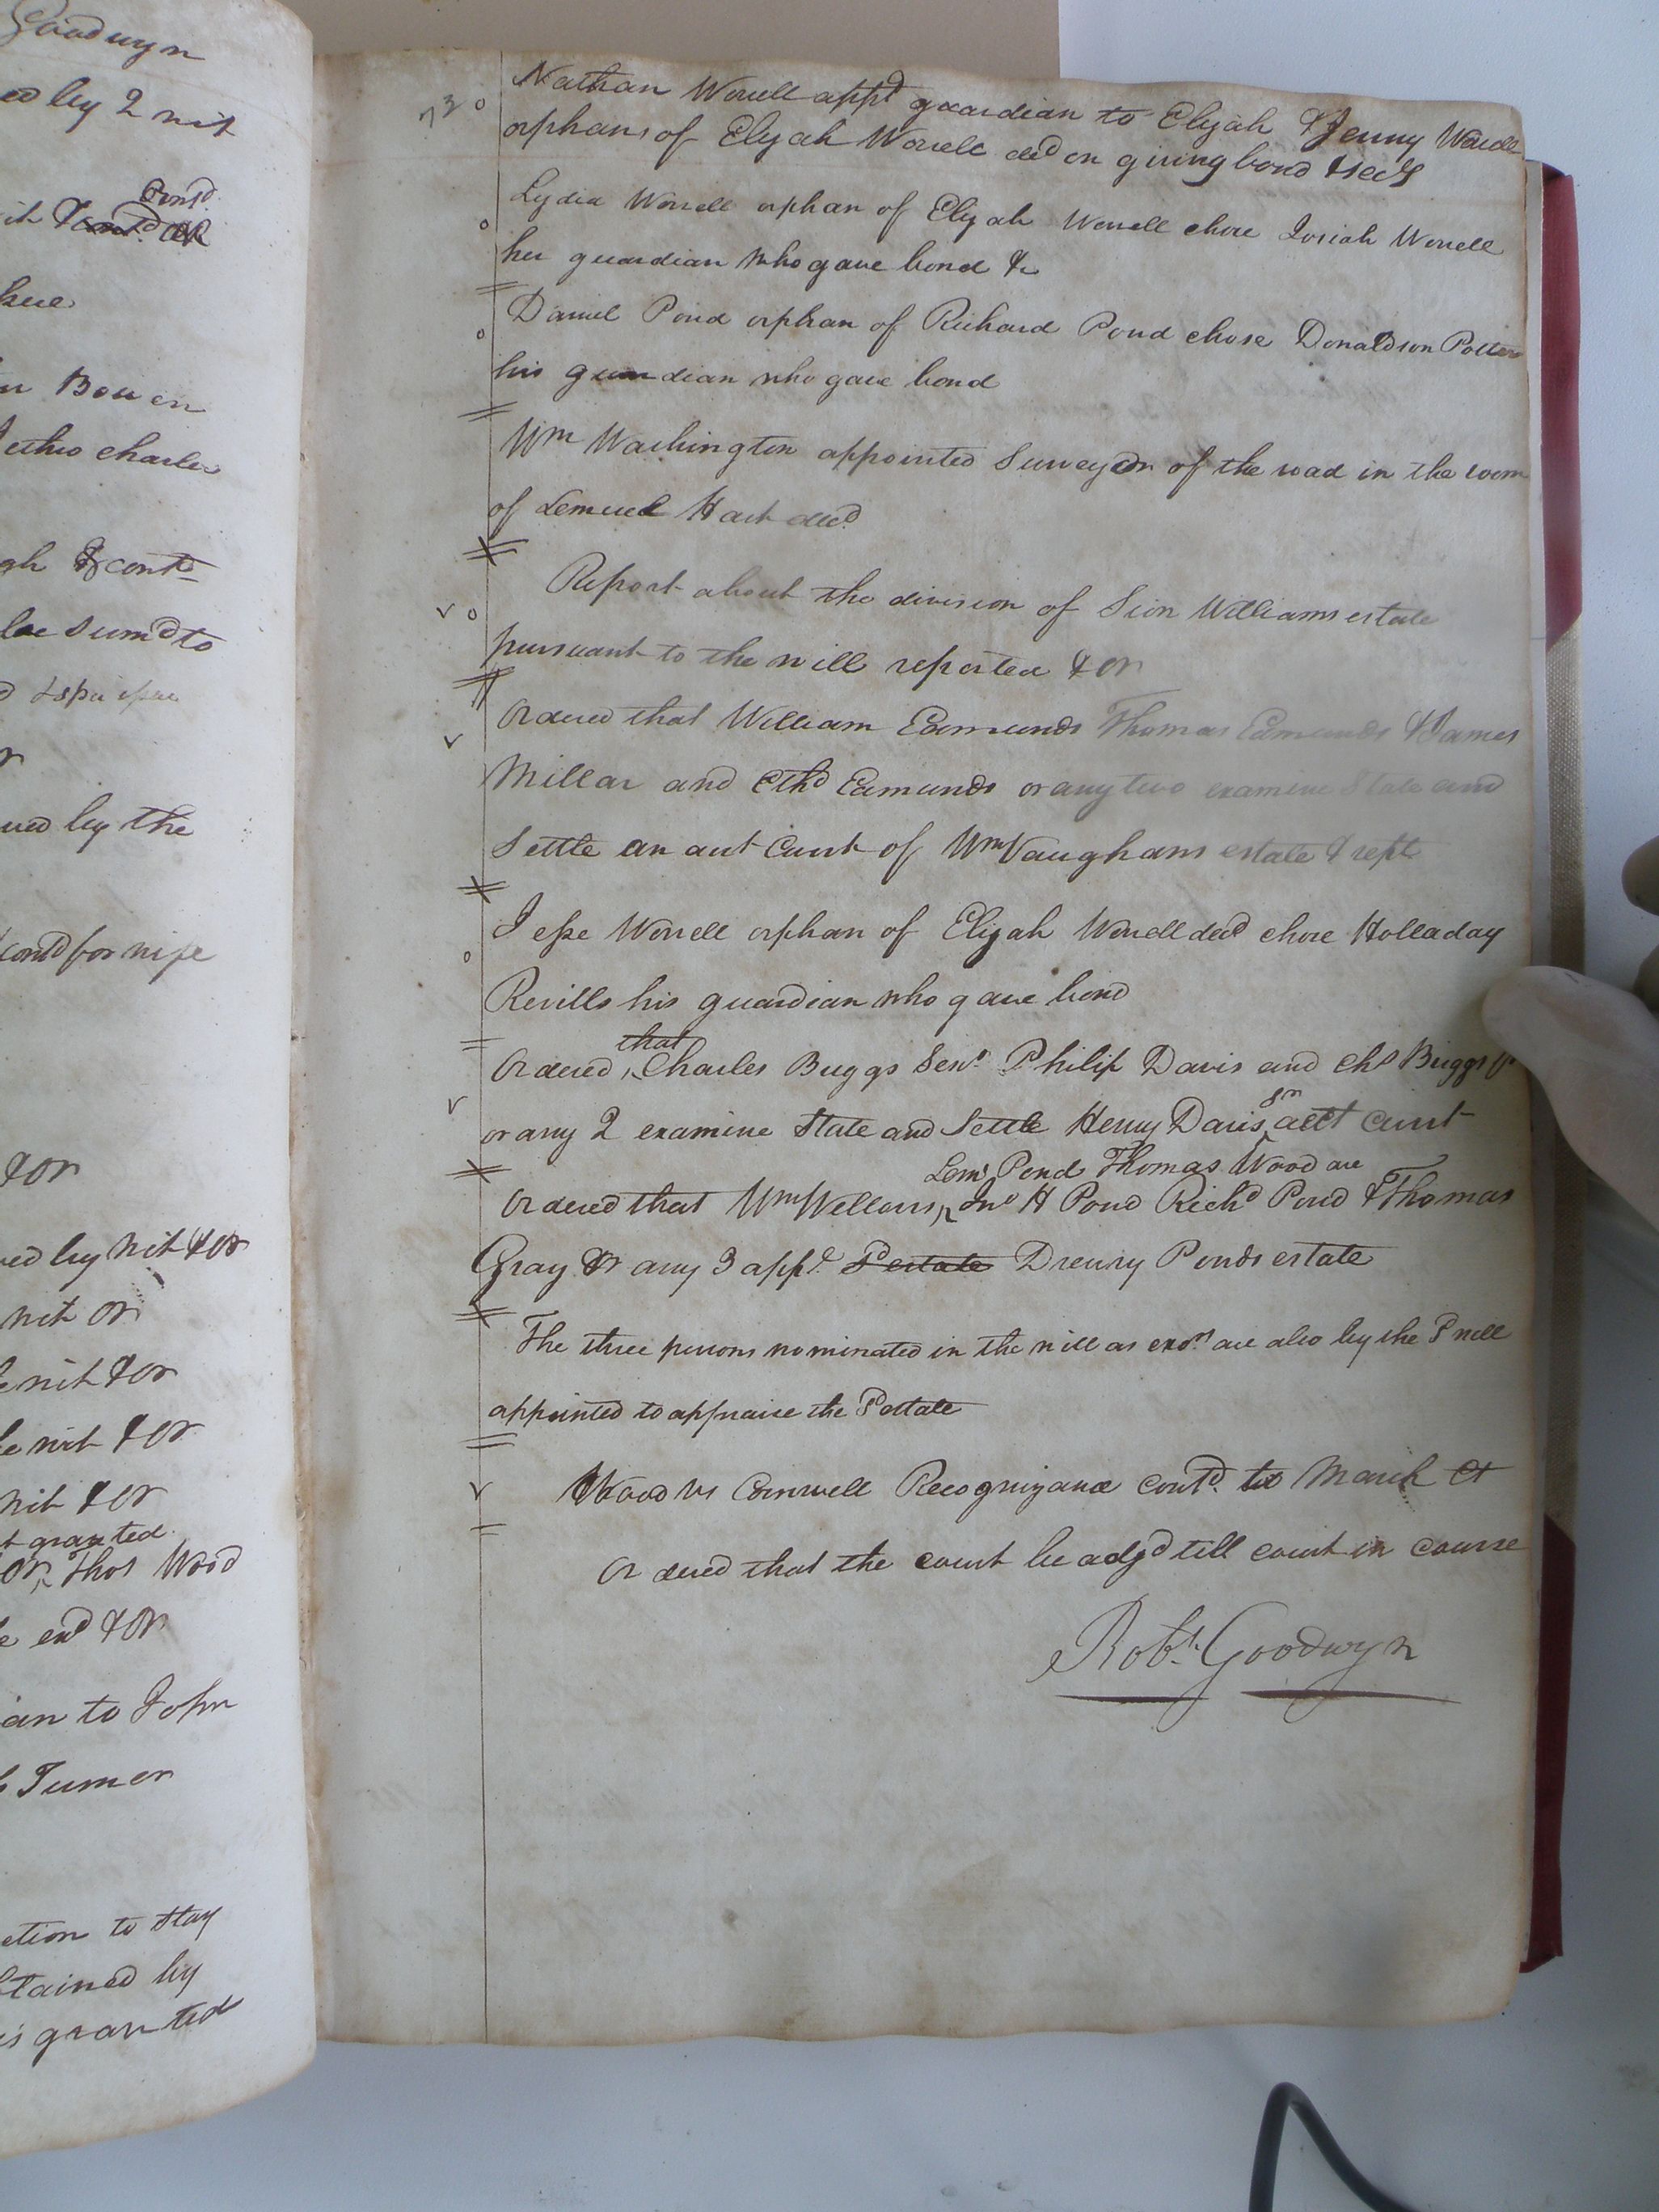 Goodwyn
ed by 2 wit
Contd.
Bowen
charles
& contd
be sumd to
ued by the
contd for wife
& or
ved by wit & or
wit or
wit & or
wit & or
wit & or
t granted
or Thos Wood
& or
an to John
Turner
ction to stay
btained by
is granted
73 o
Nathan Worrell appd guardian to Elijah & Jenny Worrell
orphans of Elijah Worrell decd on giving bond & secy
o Lydia Worrell orphan of Elijah Worrell chose Josiah Worrell
her guardian who gave bond &c
o Daniel Pond orphan of Richard Pond chose Donaldson Potter
his guardian who gave bond
Wm Washington appointed Surveyor of the road in the room
of Lemuel Hart decd
v o Report about the division of Sion Williams estate
pursuant to the will reported & or
v Ordered that William Edmunds Thomas Edmunds & James
Millar and Ethd Edmunds or any two examine State and
Settle an aut Curt of Wm Vaughans estate & rept
o Jesse Worrell orphan of Elijah Worrell decd chose Holladay
Revills his guardian who gave bond
that
Ordered Charles Buggs Senr. Philip Davis and Chs Briggs Jr
sr
v or any 2 examine State and Settle Henry Davis acct curt
Lemr Pond Thomas Wood are
Ordered that Wm Wellons Jno H Pond Richd Pond & Thomas
Gray or any 3 appd. S estate Drewry Ponds estate
The three persons nominated in the will as exors are also by the S will
appointed to appraise the S estate
v Wood vs Cornwell Recognizance contd. to March Ct
Ordered that the court be adjd till court in course
Robt. Goodwyn